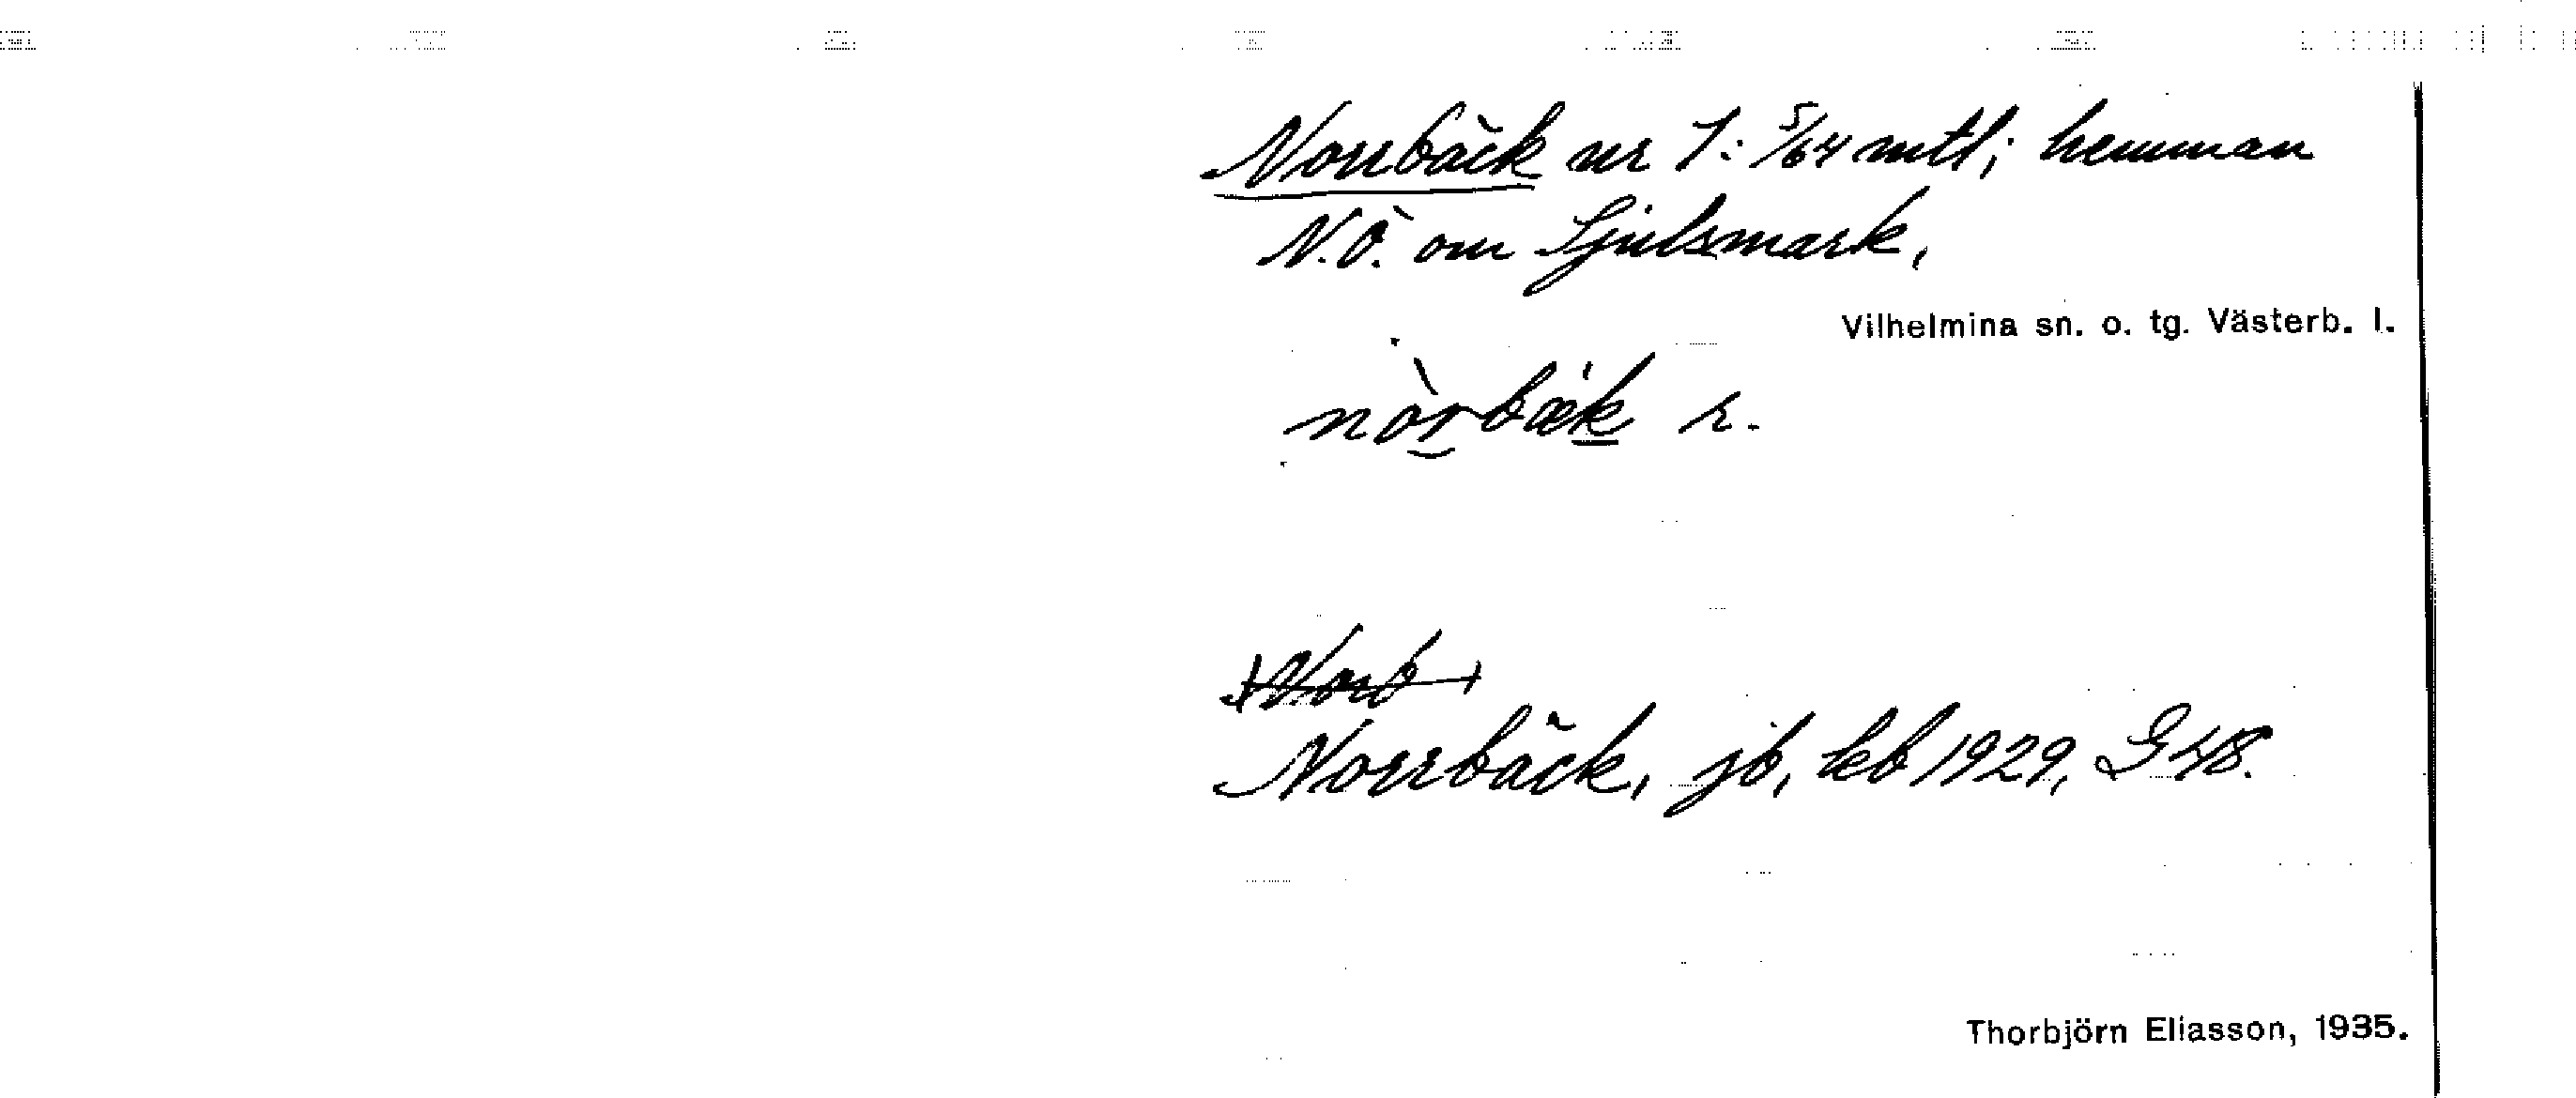 Norrbäck nr 1: 5/64 mtl; hemman
N.Ö. om Sjulsmark,
Vilhelmina sn. o. tg. Västerb. l.
nòrbæk r.
Norrb
Norrbäck, jb, kb 1929, G 48.
Thorbjörn Eliasson, 1935.